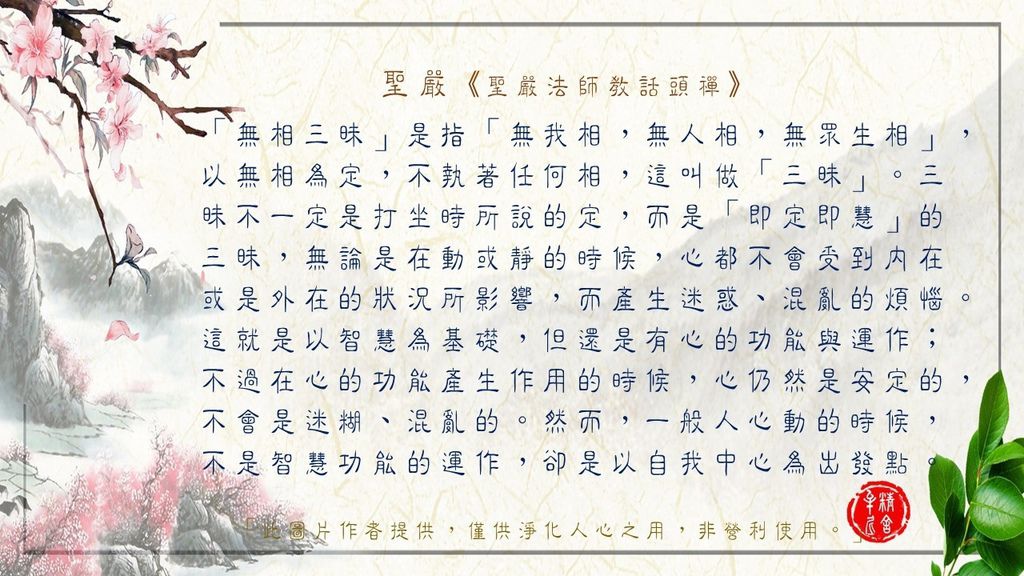 聖嚴《聖嚴法師教話頭禪》
「無相三昧」是指「無我相，無人相，無眾生相」，
以無相為定，不執著任何相，這叫做「三昧」。三
昧不一定是打坐時所說的定，而是「即定即慧」的
三昧，無論是在動或靜的時候，心都不會受到內在
或是外在的狀況所影響，而產生迷惑、混亂的煩惱。
這就是以智慧為基礎，但還是有心的功能與運作；
不過在心的功能產生作用的時候，心仍然是安定的，
不會是迷糊、混亂的。然而，一般人心動的時候，
不是智慧功能的運作，卻是以自我中心為出發點。
「此圖片作者提供，僅供淨化人心之用，非營利使用。」
精舍